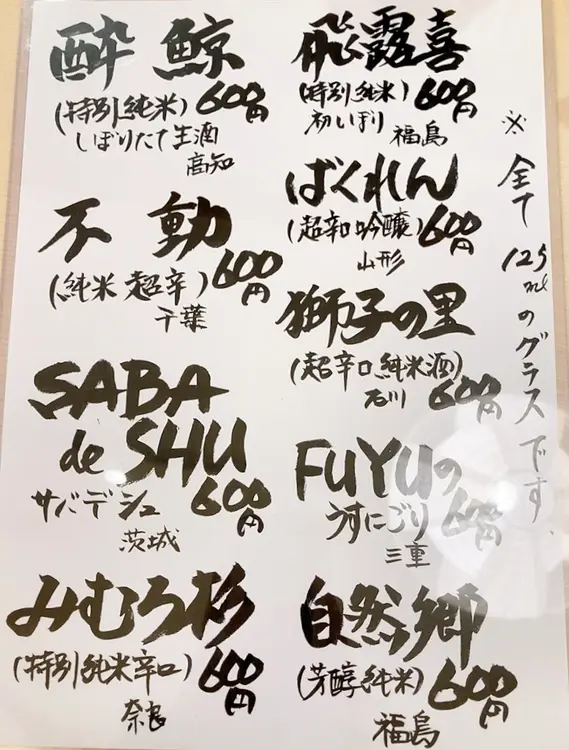 ※全て125mlのグラスです、
飛露喜
(特別純米) 600円
初しぼり
福島
ばくれん
(超辛口吟醸) 600円
山形
獅子の里
(超辛口純米酒)
石川 600円
FUYUの
うすにごり 600円
三重
自然郷
(芳醇純米) 600円
福島
酔鯨
(特別純米) 600円
しぼりたて生酒
高知
不動
(純米超辛) 600円
千葉
SABA
de SHU
サバデシュ 600円
茨城
みむろ杉
(特別純米辛口) 600円
奈良